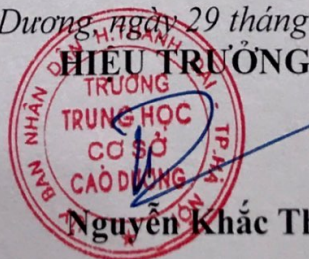 Dương, ngày 29 tháng
HIỆU TRƯỞNG
BAN NHÂN DÂN H.THANH OAI - TP.HÀ NỘI
TRƯỜNG
TRUNG HỌC
CƠ SỞ
CAO DƯƠNG
Nguyễn Khắc Th